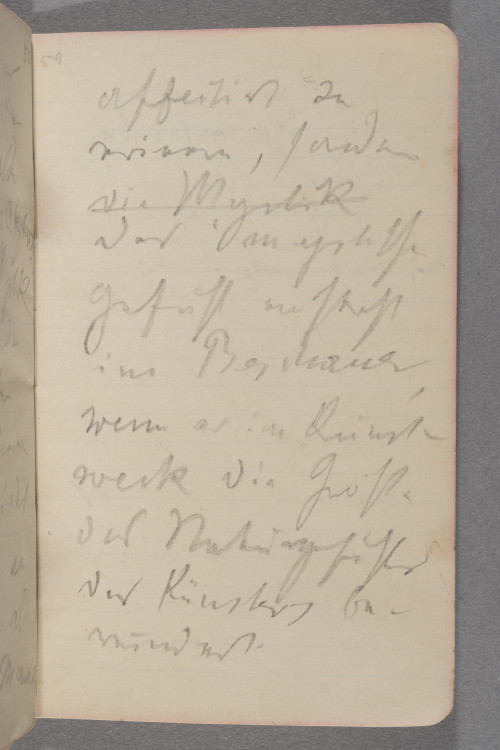 59
affectirt zu
, sondern
die Mystik
das mystische
Gefühl entsteht
im Beschauer,
wenn er im Kunst-
werk die Größe
des Naturgefühls
des Künstlers be-
wundert.